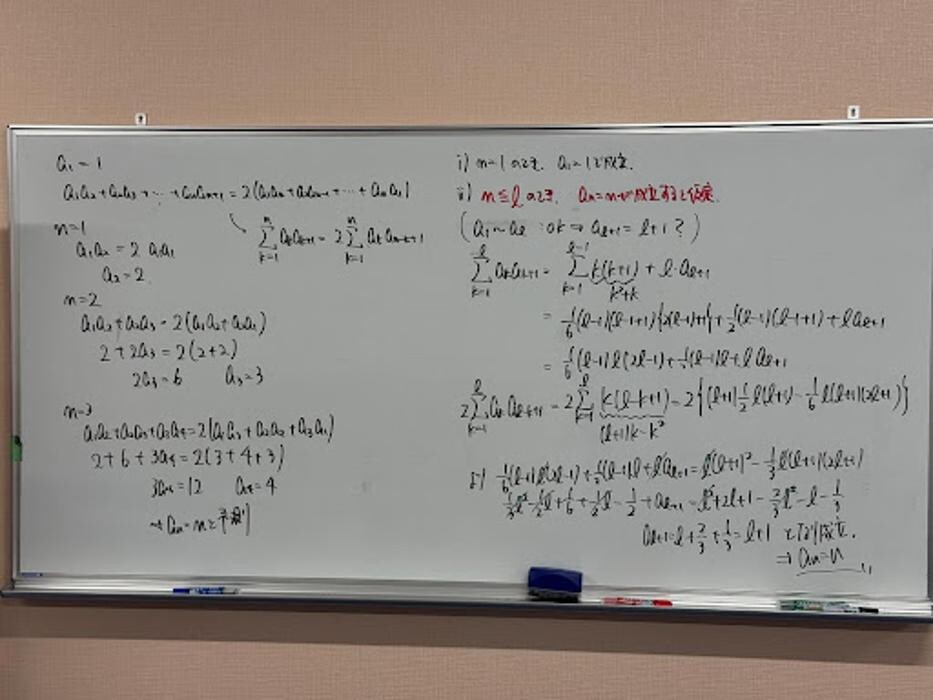 a₁ = 1
a₁a₂+a₂a₃+…+aₙaₙ₊₁ = 2(a₁aₙ+a₂aₙ₋₁+…+aₙa₁)
n=1
a₁a₂ = 2 a₁a₁
a₂ = 2.
n=2
a₁a₂+a₂a₃ = 2(a₁a₂+a₂a₁)
2+2a₃ = 2(2+2)
2a₃ = 6 a₃ = 3
n=3
a₁a₂+a₂a₃+a₃a₄ = 2(a₁a₃+a₂a₂+a₃a₁)
2+6+3a₄ = 2(3+4+3)
3a₄ = 12 a₄ = 4
→ aₙ = n と予測
∑_{k=1}^{n} aₖaₖ₊₁ = 2∑_{k=1}^{n} aₖaₙ₋ₖ₊₁
i) n=1のとき. a₁=1で成立.
ii) n≦lのとき. aₙ=nが成立すると仮定.
(a₁~aₗ : ok ⇒ aₗ₊₁ = l+1 ?)
∑_{k=1}^{l} aₖaₖ₊₁ = ∑_{k=1}^{l-1} k(k+1) + l・aₗ₊₁
k²+k
= 1/6(l-1)(l-1+1){2(l-1)+1}+1/2(l-1)(l-1+1)+laₗ₊₁
= 1/6(l-1)l(2l-1)+1/2(l-1)l+laₗ₊₁
2∑_{k=1}^{l} aₖaₗ₋ₖ₊₁ = 2∑_{k=1}^{l} k(l-k+1) = 2{(l+1)1/2l(l+1)-1/6l(l+1)(2l+1)}
(l+1)k-k²
より 1/6(l-1)l(2l-1)+1/2(l-1)l+laₗ₊₁ = l(l+1)²-1/3l(l+1)(2l+1)
1/3l²-1/2l+1/6+1/2l-1/2+aₗ₊₁ = l²+2l+1-2/3l²-l-1/3
aₗ₊₁ = l+2/3+1/3 = l+1 となり成立.
⇒ aₙ=n